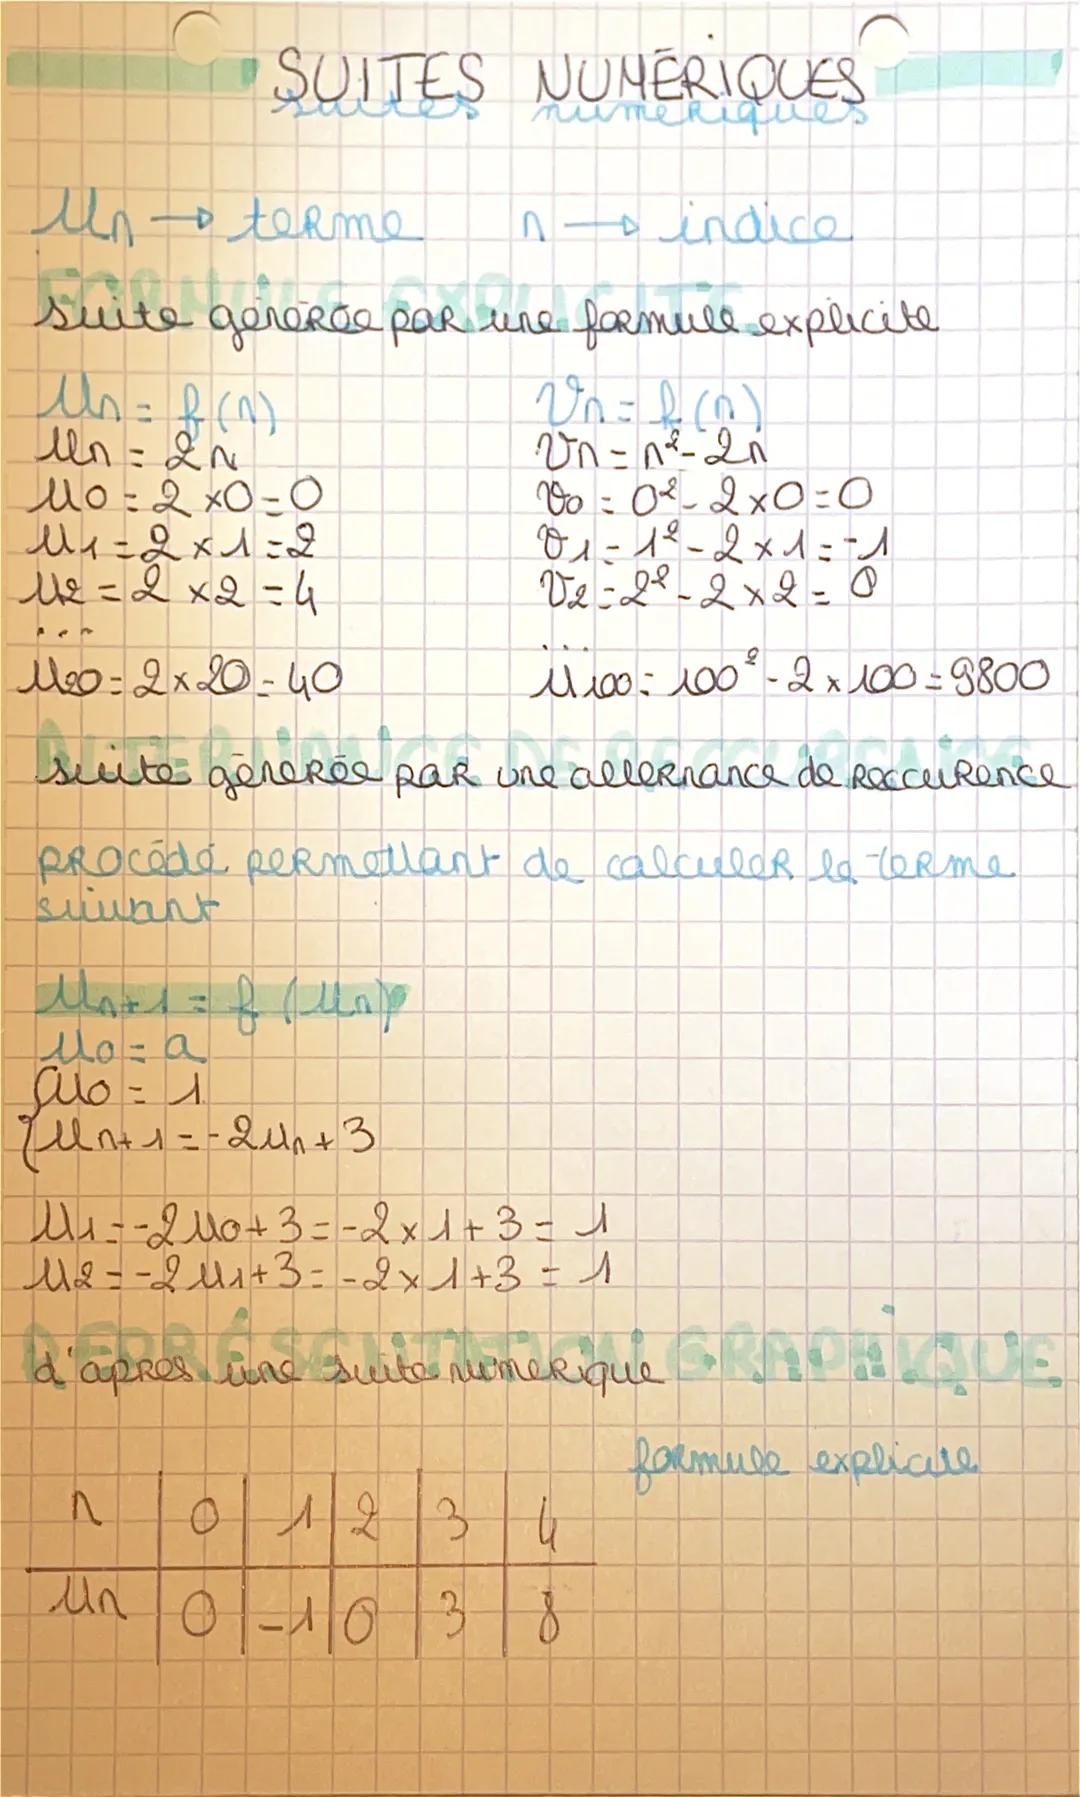 SUITES NUMÉRIQUES
suites numériques
Un → terme n → indice
FORMULE EXPLICITE
suite générée par une formule explicite
Un = f(n) Vn = f(n)
Un = 2n Vn = n² - 2n
U0 = 2 × 0 = 0 V0 = 0² - 2 × 0 = 0
U1 = 2 × 1 = 2 V1 = 1² - 2 × 1 = -1
U2 = 2 × 2 = 4 V2 = 2² - 2 × 2 = 0
... ...
U20 = 2 × 20 = 40 U100 = 100² - 2 × 100 = 9800
ALTERNANCE DE RECCURENCE
suite générée par une allernance de reccurence
procédé permettant de calculer le terme
suivant
Un+1 = f(Un)
U0 = a
{U0 = 1
{Un+1 = -2Un + 3
U1 = -2U0 + 3 = -2 × 1 + 3 = 1
U2 = -2U1 + 3 = -2 × 1 + 3 = 1
REPRÉSENTATION GRAPHIQUE
d'après une suite numérique
formule explicite
n 0 1 2 3 4
Un 0 -1 0 3 8